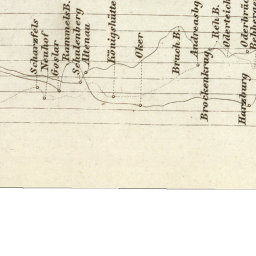 Scharzfels
Neuhof
Goslar
Rammels B.
Schulenberg
Altenau
Königshütte
Oker
Bruch B.
Andreasbg
Brockenkrug
Reh B.
Oderteich
Oderbrü
Harzburg